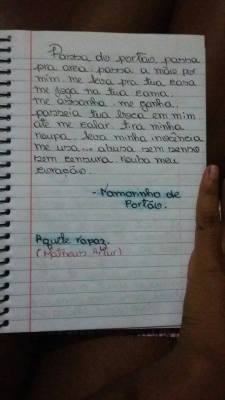 Passa do portão, passa
pra area. passa a mão por
mim me leva pra tua casa
me joga na tua cama.
me assanha, me ganha,
passeia tua boca em mim
até me calar. tira minha
roupa, leva minha inocência
me usa... abusa sem senso
sem censura rouba meu
coração.
- Namorinho de
Portão.
Aquele rapaz.
(Matheus Artur)